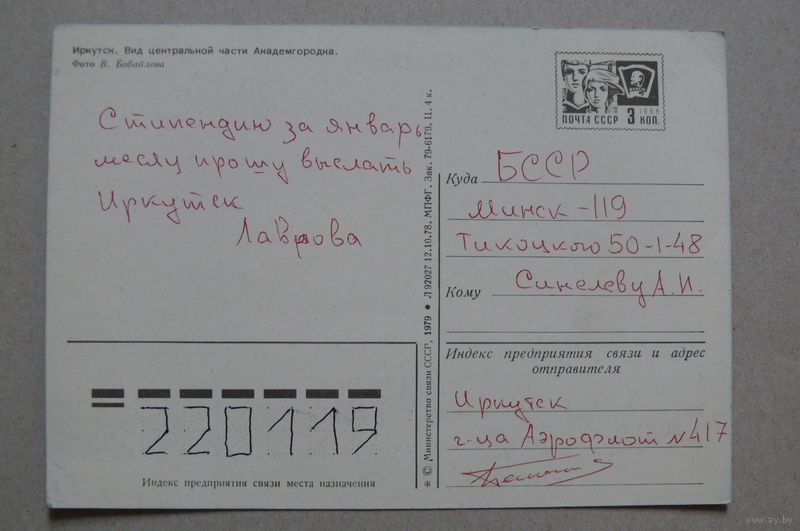 Иркутск. Вид центральной части Академгородка.
Фото В. Бабайлова
Стипендию за январь
месяц прошу выслать
Иркутск
Лаврова
ПОЧТА СССР 3 КОП.
1968
Куда БССР
Минск-119
Тикоцкого 50-1-48
Кому Синелеву А.И.
Индекс предприятия связи и адрес
отправителя
Иркутск
г-ца Аэрофлот N 417
220119
Индекс предприятия связи места назначения
* © Министерство связи СССР, 1979 ● Л 92027 12.10.78. МПФГ. Зак. 79-6179. Ц. 4 к.
www.ay.by